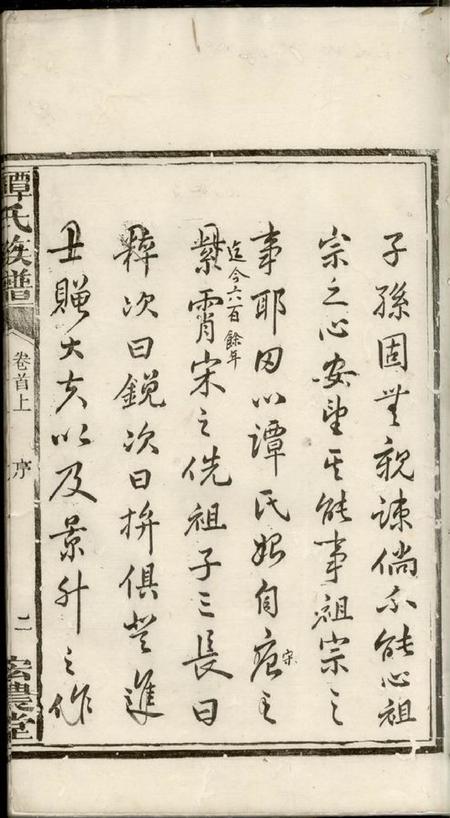 子孫固無親疎倘不能心祖
宗之心安望其能事祖宗之
事耶因以譚氏始自唐宋之
迄今六百餘年
紫霄宋之侁祖子三長曰
粹次曰銳次曰拚俱登進
士贈大夫以及景升之作
譚氏族譜
卷首上
序
二
宏農堂